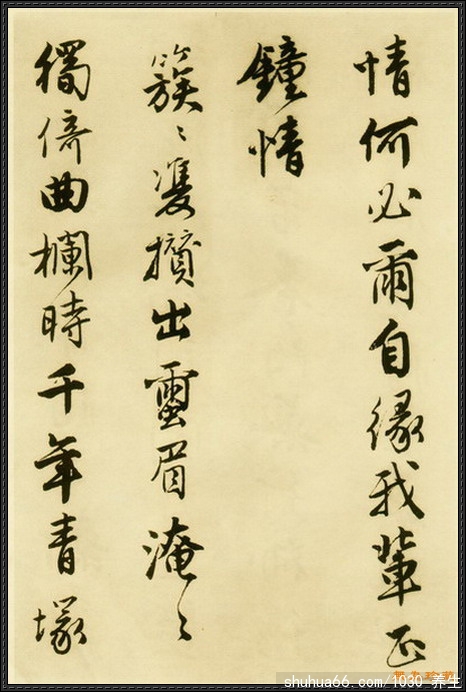 情何必爾自緣我輩正
鐘情
簇〻雙攢出蠒眉淹〻
獨倚曲欄時千年青塚
shuhua66.com/1030 养生